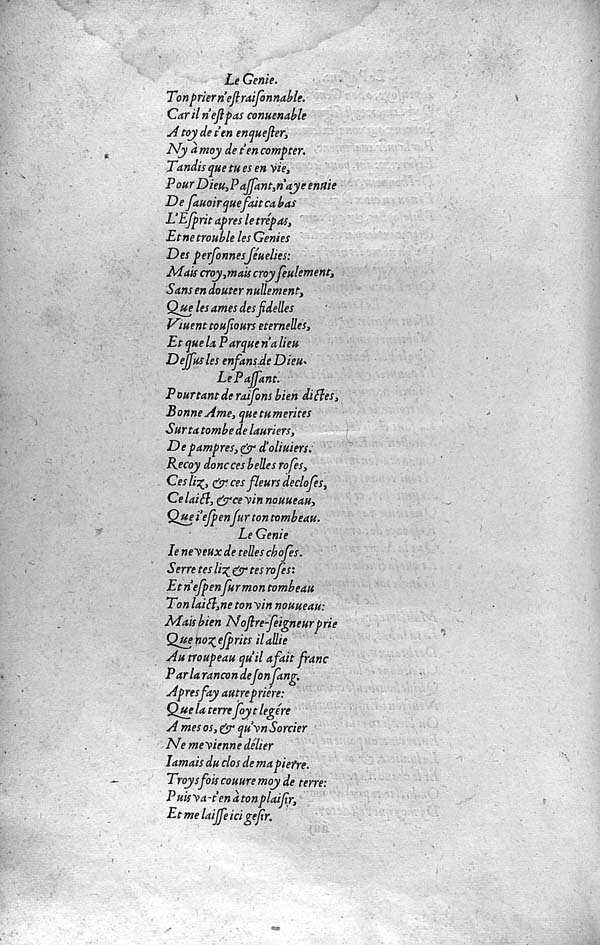 Le Genie.
Ton prier n'eſt raiſonnable.
Car il n'eſt pas conuenable
A toy de t'en enqueſter,
Ny à moy de t'en compter.
Tandis que tu es en vie,
Pour Dieu, Paſſant, n'aye enuie
De ſauoir que fait ca bas
L'Eſprit apres le trépas,
Et ne trouble les Genies
Des perſonnes ſéuelies:
Mais croy, mais croy ſeulement,
Sans en douter nullement,
Que les ames des fidelles
Viuent touſiours eternelles,
Et que la Parque n'a lieu
Deſſus les enfans de Dieu.
Le Paſſant.
Pour tant de raiſons bien dictes,
Bonne Ame, que tu merites
Sur ta tombe de lauriers,
De pampres, & d'oliuiers.
Recoy donc ces belles roſes,
Ces liz, & ces fleurs decloſes,
Ce laict, & ce vin nouueau,
Que i'eſpen ſur ton tombeau.
Le Genie
Ie ne veux de telles choſes.
Serre tes liz & tes roſes:
Et n'eſpen ſur mon tombeau
Ton laict, ne ton vin nouueau:
Mais bien Noſtre-ſeigneur prie
Que noz eſprits il allie
Au troupeau qu'il a fait franc
Par la rancon de ſon ſang.
Apres fay autre priére:
Que la terre ſoyt legére
A mes os, & qu'vn Sorcier
Ne me vienne délier
Iamais du clos de ma pierre.
Troys fois couure moy de terre:
Puis va-t'en à ton plaiſir,
Et me laiſſe ici geſir.